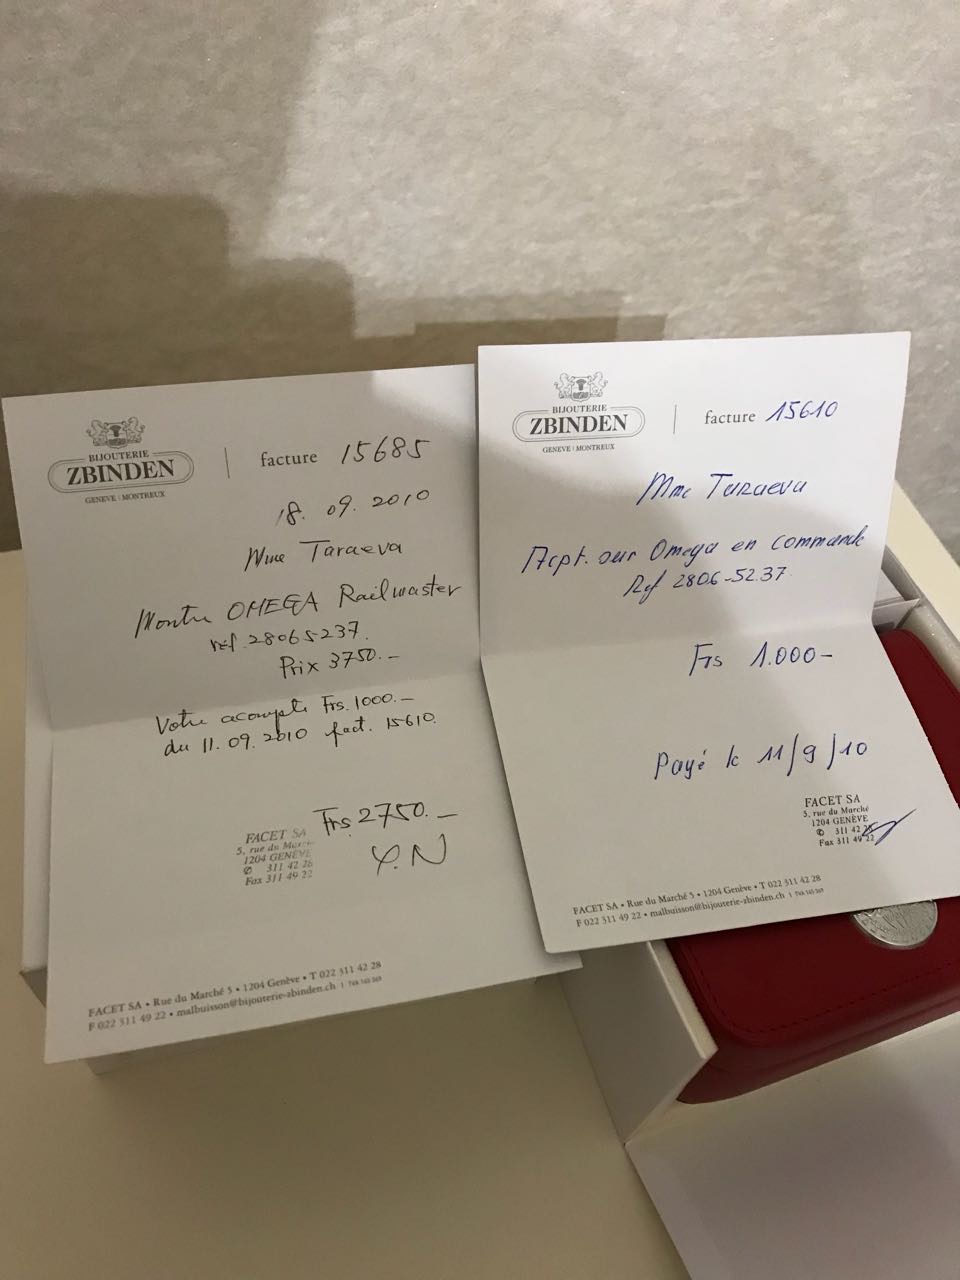 BIJOUTERIE
ZBINDEN
GENEVE | MONTREUX
facture 15685
18. 09. 2010
Mme Taraeva
Montre OMEGA Railmaster
réf 28065237.
Prix 3750.—
Votre acompte Frs. 1000.—
du 11.09.2010 fact. 15610.
Frs. 2750.—
Y.N
FACET SA
5, rue du Marché
1204 GENÈVE
✆ 311 42 28
Fax 311 49 22
FACET SA • Rue du Marché 5 • 1204 Genève • T 022 311 42 28
F 022 311 49 22 • malbuisson@bijouterie-zbinden.ch |
BIJOUTERIE
ZBINDEN
GENEVE | MONTREUX
facture 15610
Mme Taraeva
Acpt. sur Omega en commande
Réf 2806-52.37
Frs 1.000—
Payé le 11/9/10
FACET SA
5, rue du Marché
1204 GENÈVE
✆ 311 42 28
Fax 311 49 22
FACET SA • Rue du Marché 5 • 1204 Genève • T 022 311 42 28
F 022 311 49 22 • malbuisson@bijouterie-zbinden.ch |